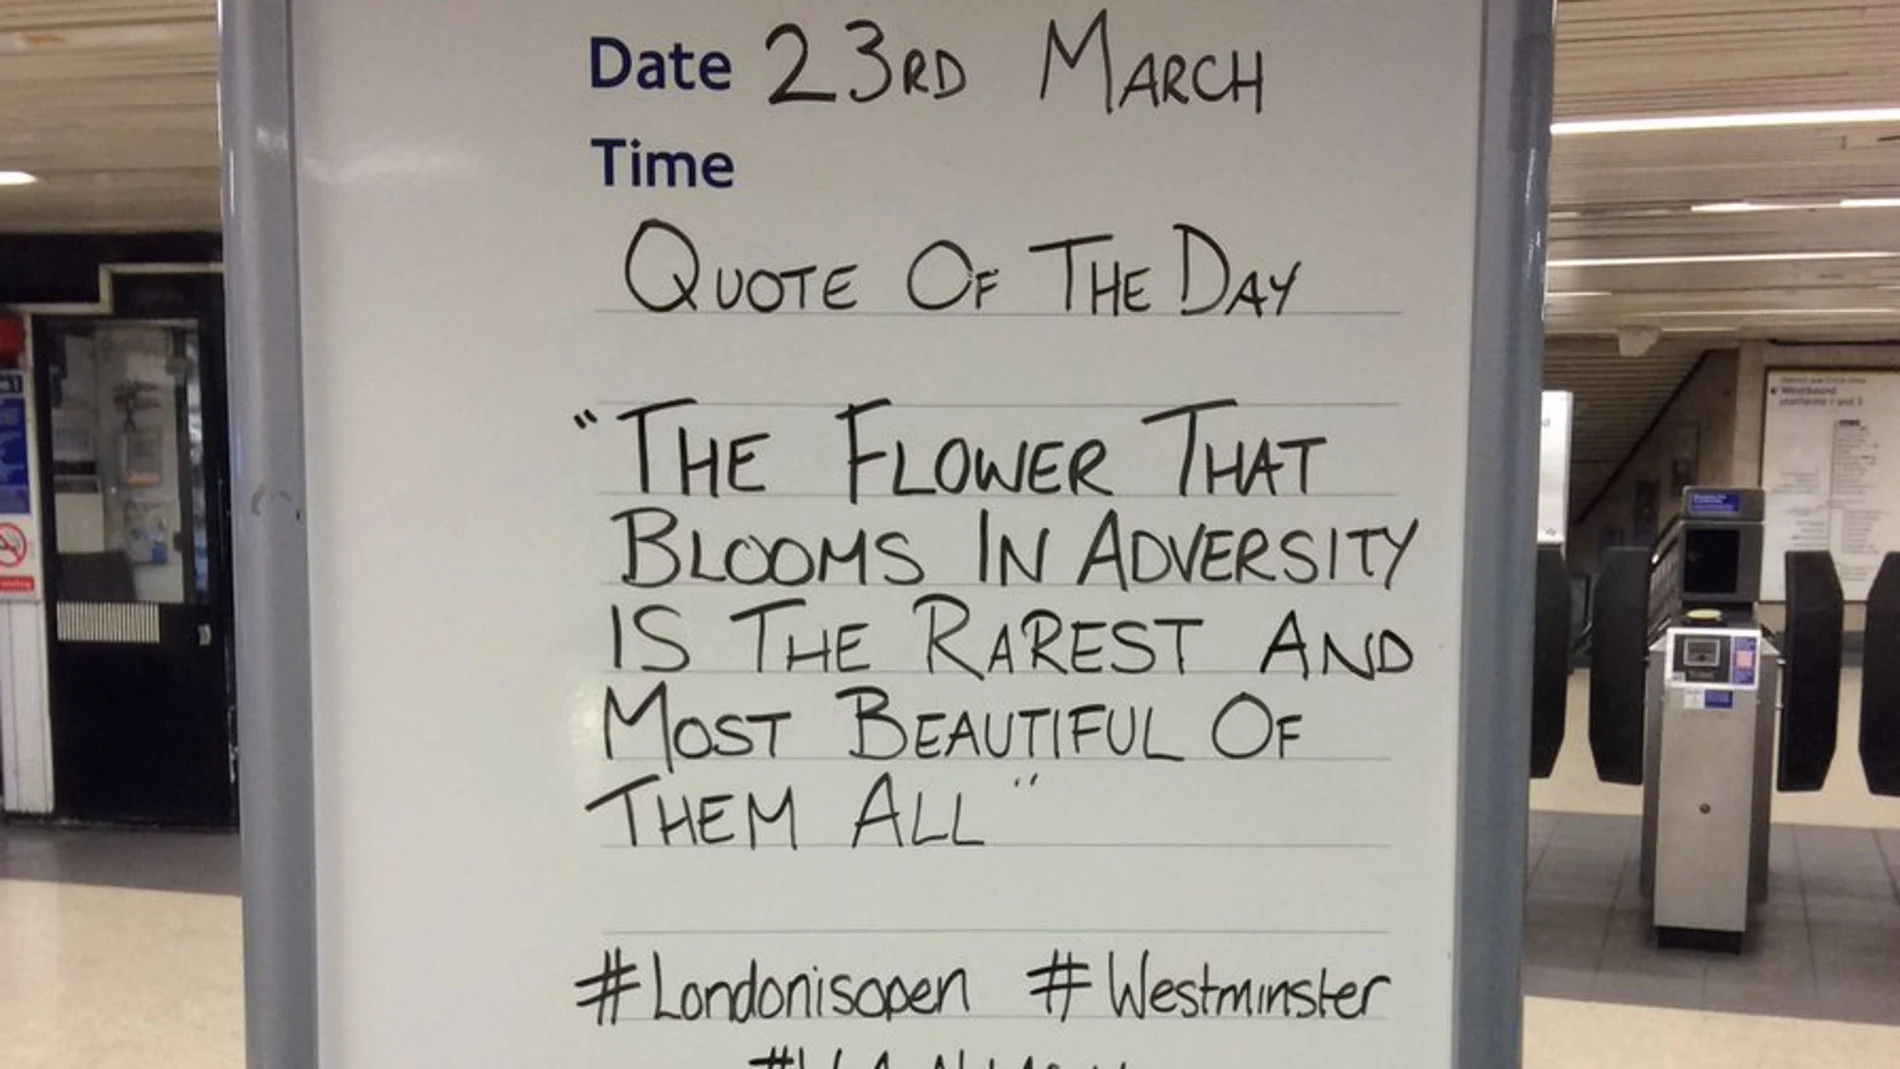 Date 23RD MARCH
Time
QUOTE OF THE DAY
"THE FLOWER THAT
BLOOMS IN ADVERSITY
IS THE RAREST AND
MOST BEAUTIFUL OF
THEM ALL"
#Londonisopen #Westminster
Westbound
platforms 1 and 2